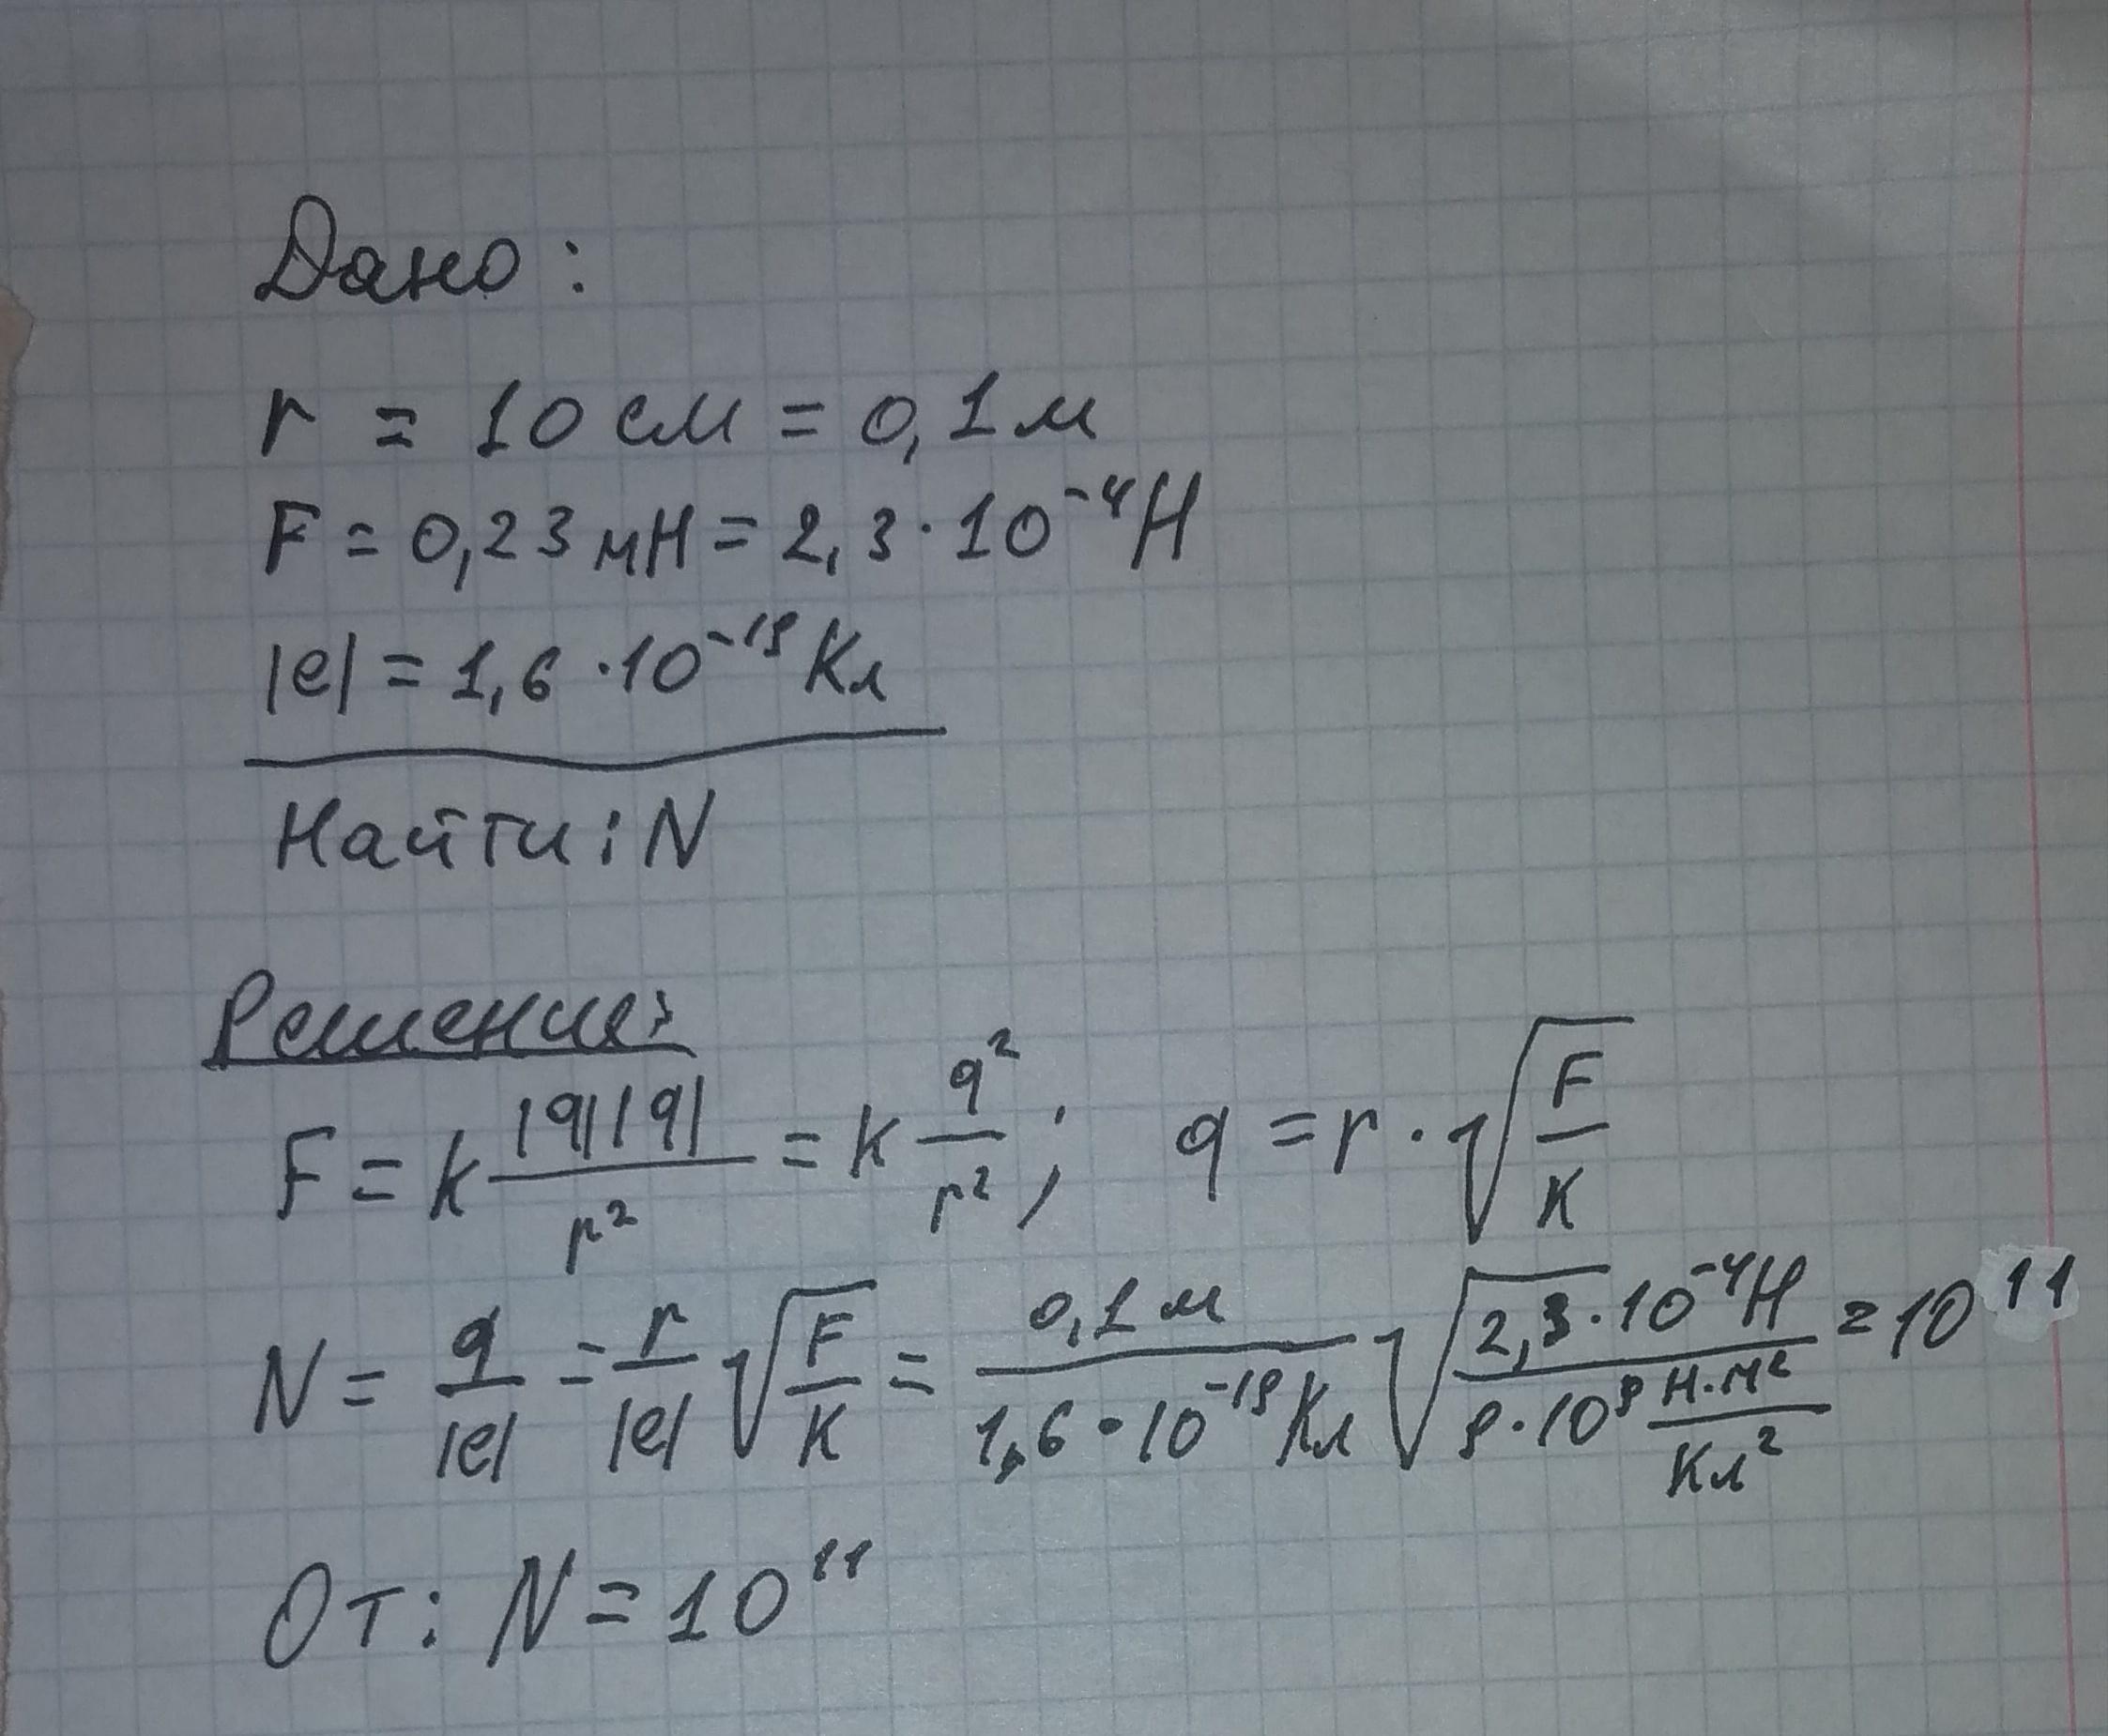 Дано:
r = 10 см = 0,1 м
F = 0,23 мН = 2,3 · 10⁻⁴ Н
|e| = 1,6 · 10⁻¹⁹ Кл
Найти: N
Решения:
F = k |q||q| / r² = k q² / r² ; q = r · √(F / k)
N = q / |e| = r / |e| √(F / k) = 0,1 м / 1,6 · 10⁻¹⁹ Кл √(2,3 · 10⁻⁴ Н / 9 · 10⁹ Н·м² / Кл²) = 10¹¹
От: N = 10¹¹